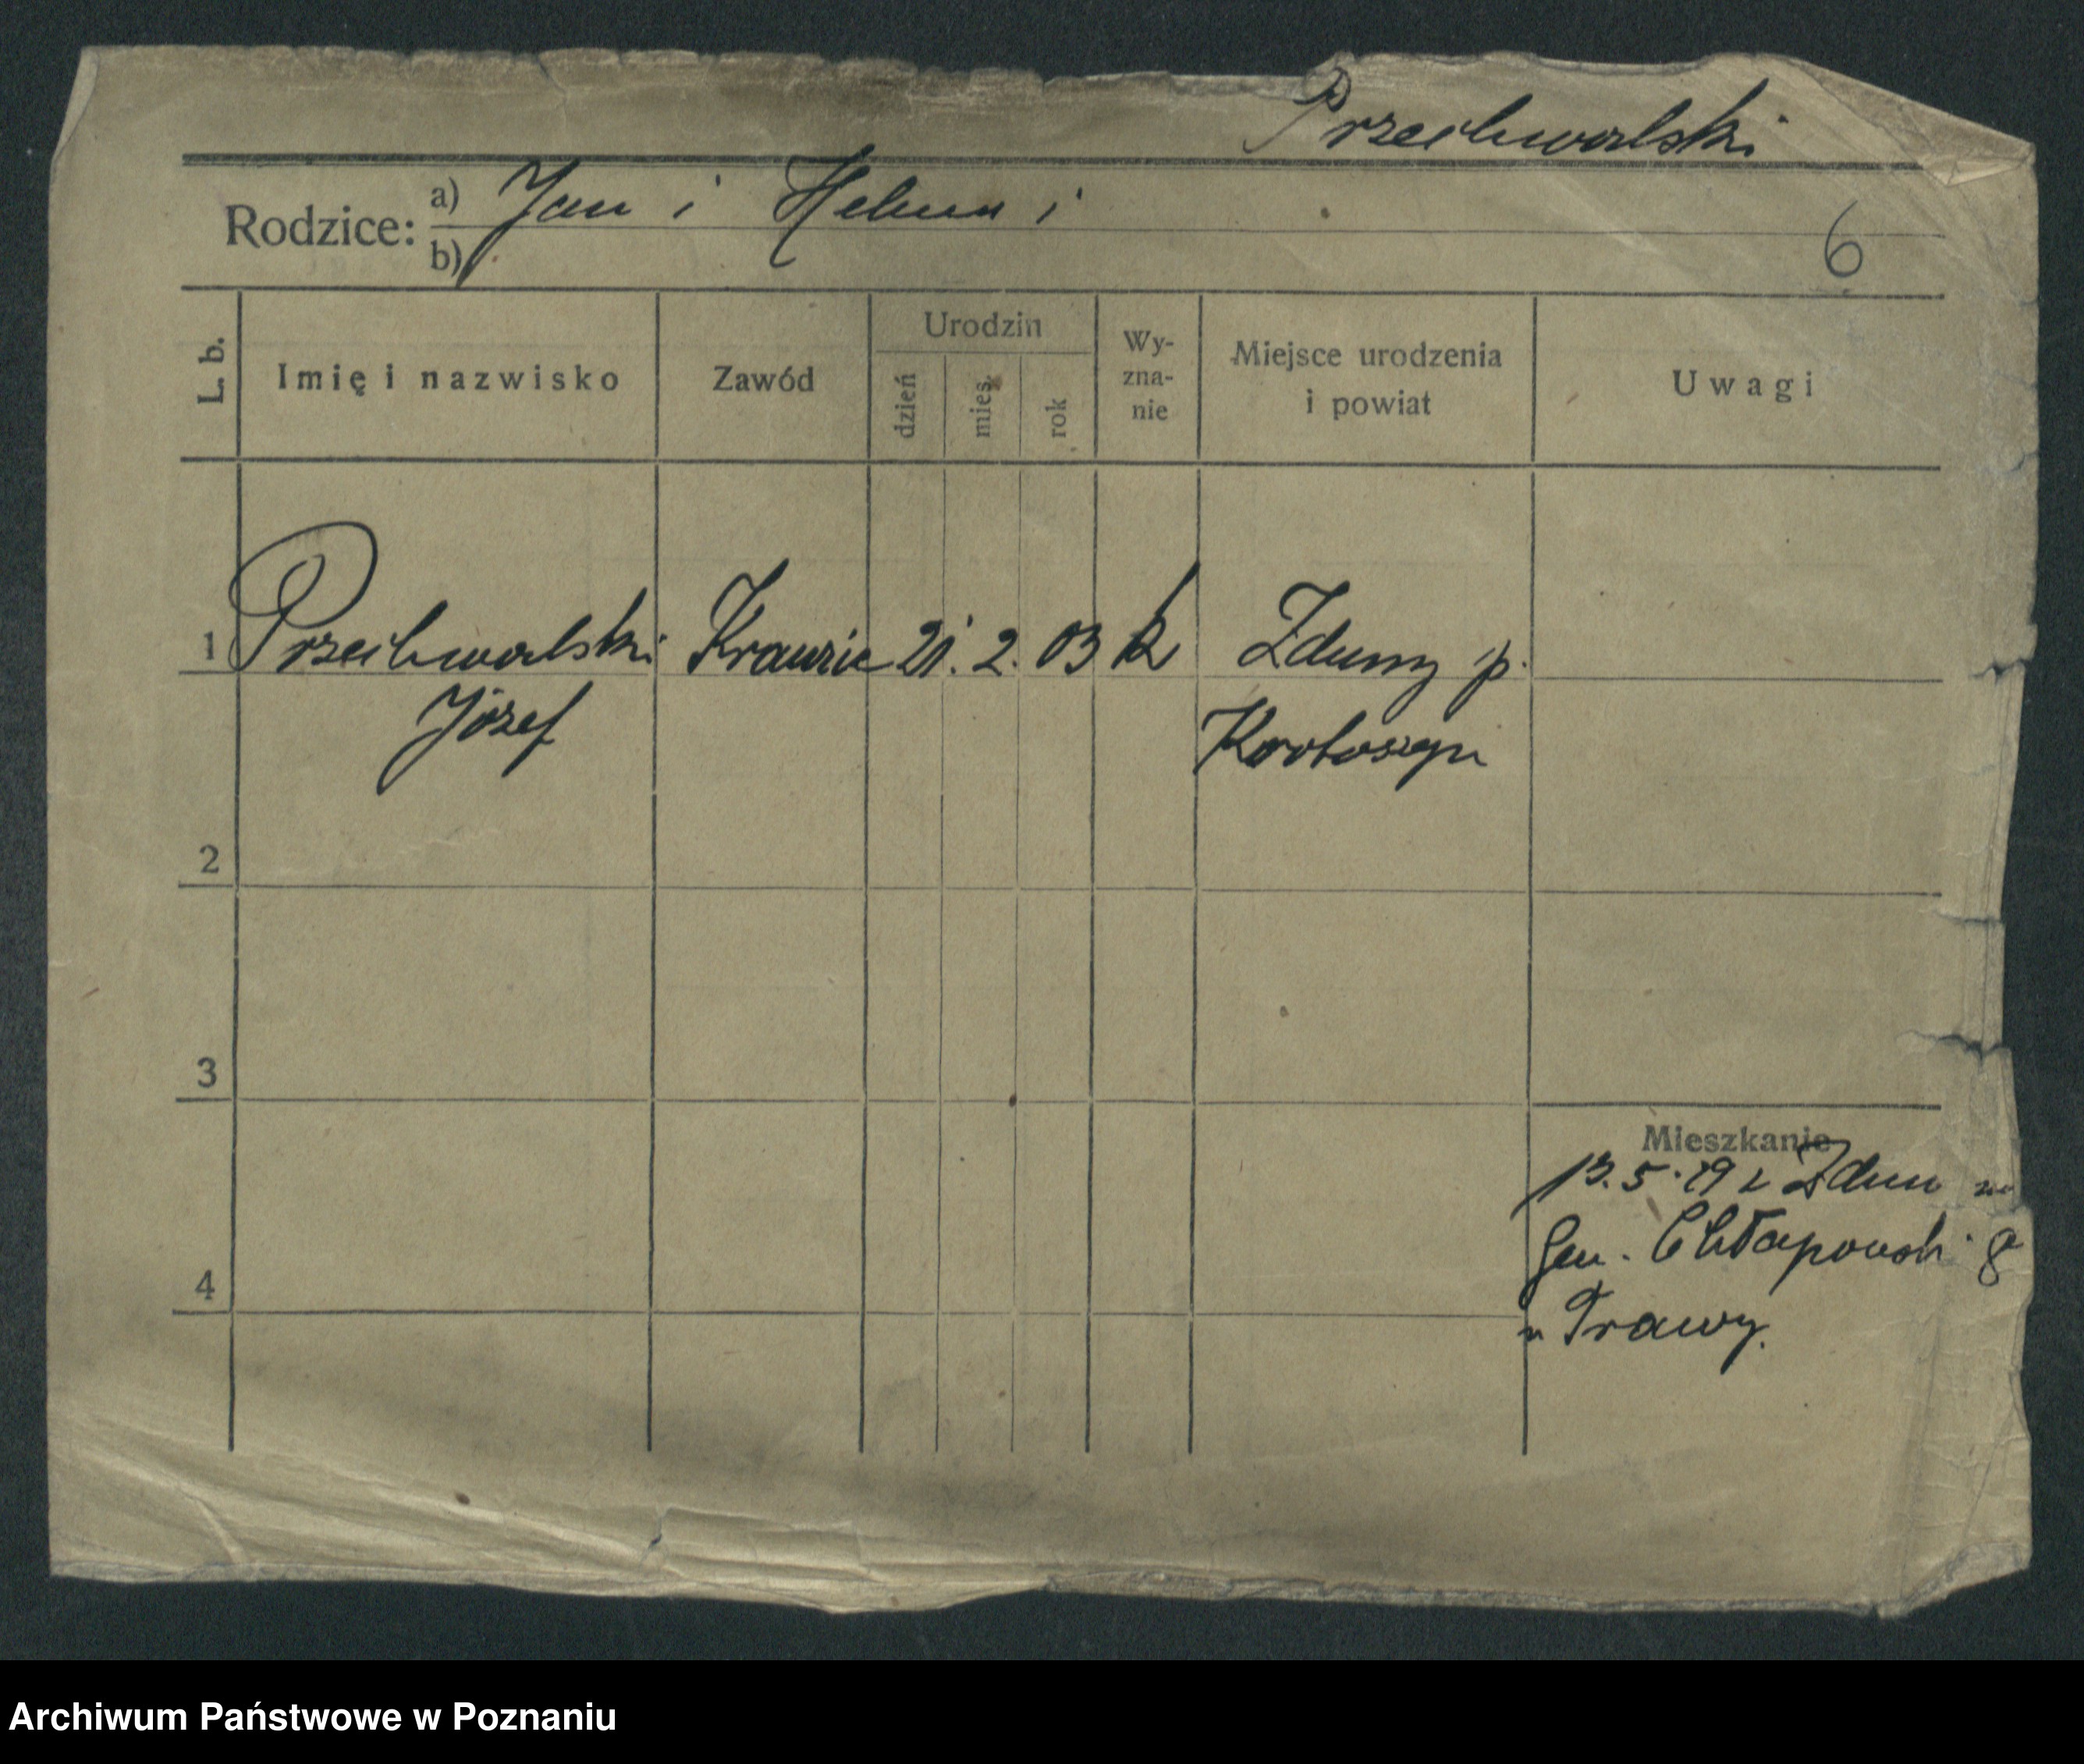 Przechwalski
Rodzice: a) Jan i Helena i
b)
6
L. b. Imię i nazwisko Zawód Urodzin dzień mies. rok Wy-zna-nie Miejsce urodzenia i powiat Uwagi
1 Przechwalski 21. 2. 03 k Zduny p.
Józef Krotoszyn
2
3
Mieszkanie
13.5.29 z Zdun na
Gen. Chłapowski 8
u Trawy.
4
Archiwum Państwowe w Poznaniu